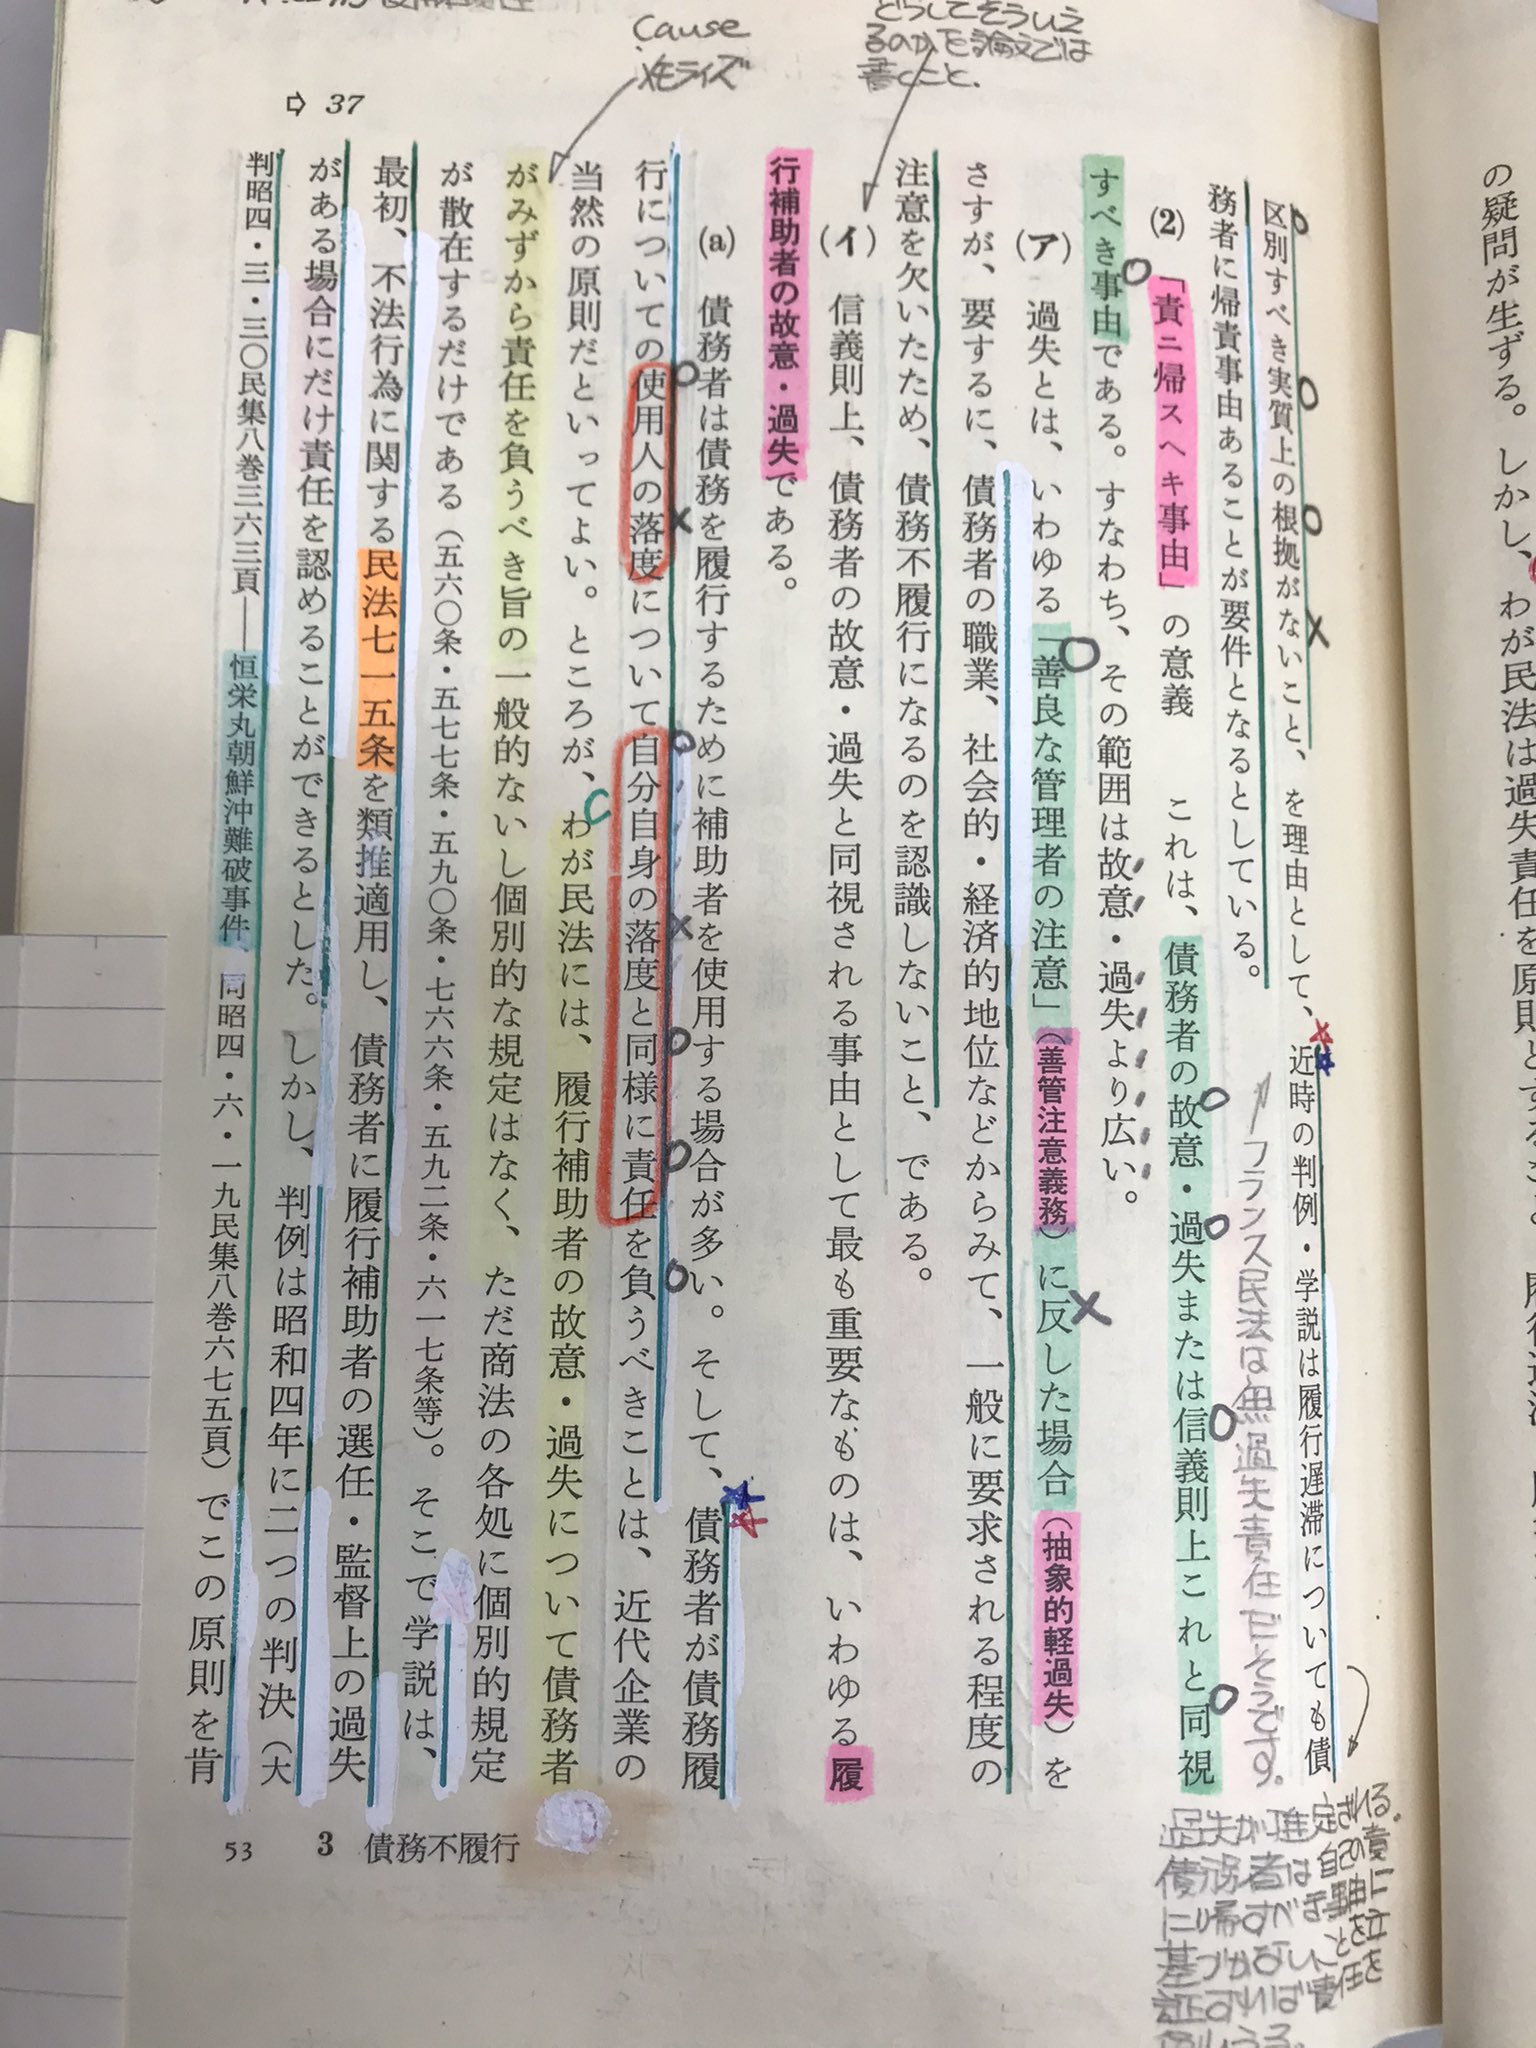 Cause
メモライズ
どうしてそういえ
るのかを論文では
書くこと.
⇨ 37
の疑問が生ずる。しかし、わが民法は過失責任を原則とする
区別すべき実質上の根拠がないこと、を理由として、近時の判例・学説は履行遅滞についても債
務者に帰責事由あることが要件となるとしている。
フランス民法は無過失責任だそうです。
(2) 「責ニ帰スヘキ事由」の意義 これは、債務者の故意・過失または信義則上これと同視
すべき事由である。すなわち、その範囲は故意・過失より広い。
(ア) 過失とは、いわゆる「善良な管理者の注意」(善管注意義務)に反した場合(抽象的軽過失)を
さすが、要するに、債務者の職業、社会的・経済的地位などからみて、一般に要求される程度の
注意を欠いたため、債務不履行になるのを認識しないこと、である。
(イ) 信義則上、債務者の故意・過失と同視される事由として最も重要なものは、いわゆる履
行補助者の故意・過失である。
(a) 債務者は債務を履行するために補助者を使用する場合が多い。そして、債務者が債務履
行についての使用人の落度について自分自身の落度と同様に責任を負うべきことは、近代企業の
当然の原則だといってよい。ところが、わが民法には、履行補助者の故意・過失について債務者
がみずから責任を負うべき旨の一般的ないし個別的な規定はなく、ただ商法の各処に個別的規定
が散在するだけである(五六〇条・五七七条・五九〇条・七六六条・五九二条・六一七条等)。そこで学説は、
最初、不法行為に関する民法七一五条を類推適用し、債務者に履行補助者の選任・監督上の過失
がある場合にだけ責任を認めることができるとした。しかし、判例は昭和四年に二つの判決(大
判昭四・三・三〇民集八巻三六三頁――恒栄丸朝鮮沖難破事件、同昭四・六・一九民集八巻六七五頁)でこの原則を肯
過失が推定される。
債務者は自己の責
に帰すべき事由に
基づかないことを立
証すれば責任を
53 3 債務不履行